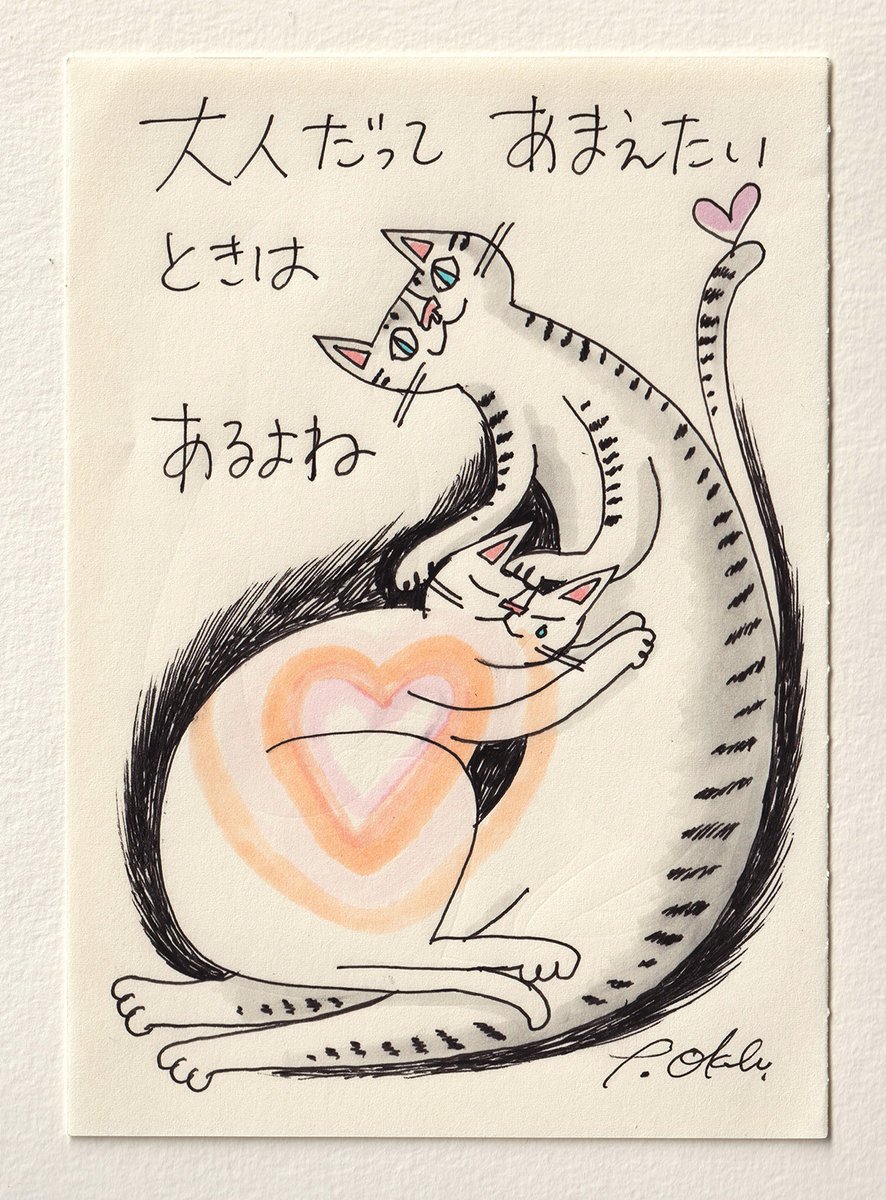 大人だって あまえたい
ときは
あるよね